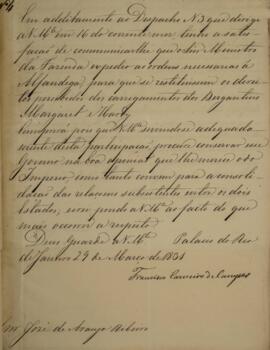 Nº 4
Em additamento ao Despacho N 3 que dirigi
a V. Mce em 16 do corrente tenho a satis-
fação de communicar-lhe que o Snr Ministro
da Fazenda expedio as ordens necessarias á
Alfandega para que se restituissem os direitos
percebidos dos carregamentos dos Bergantins
Margaret e Mary
Cumprirá pois que V. Mce servindo-se adequada-
mente desta participação procure conservar esse
Governo na boa opinião que lhe merece o do
Imperio, como tanto convem para a consoli-
dação das relações subsistentes entre os dois
Estados, pondo a V. Mce ao facto do que
mais ocorrer a respeito.
Deos Guarde a V. Mce Palacio do Rio
de Janeiro 29 de Março de 1831
Francisco Carneiro de Campos
Snr José de Araujo Ribeiro